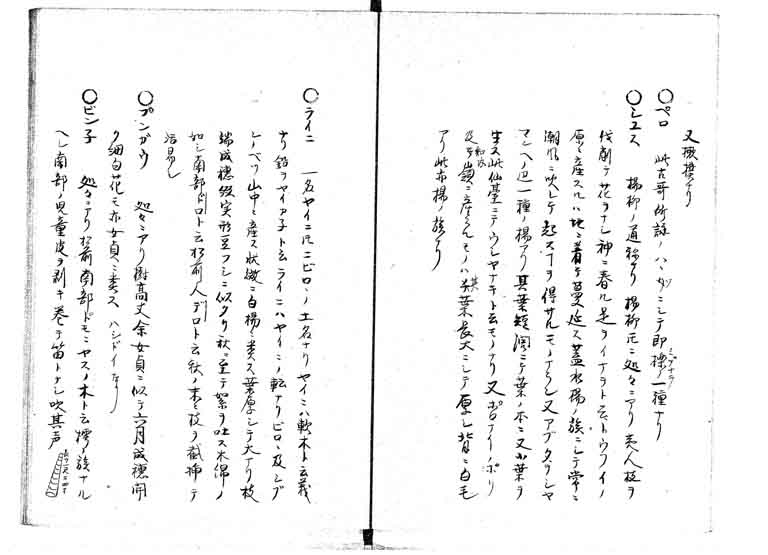 又檞樸ナリ
〇ペロ 此古哥所詠ノハヽソニシテ即槲ノ一種ナリ
〇シユス 楊柳ノ通称ナリ 楊柳 処々ニアリ 夷人枝ヲ
伐削テ花ヲナシ神ニ奉ル是ヲイナヲト云
原ニ産スルハ地ニ着テ蔓延ス蓋水楊ノ族ニシテ常ニ
潮風ニ吹レテ起ヿヲ得サルモノナラン又アブタラシヤ
マンヘノ辺一種ノ楊アリ其葉短濶ニシテ葉ノ本ニ又小葉ヲ
生ス此仙臺ニテウシヤナキト云モノナリ又
及 嶺ニ産スルモノハ其葉長大ニシテ厚ク背ニ白毛
アリ此亦楊ノ族ナリ
〇ライニ 一名ヤイニ ビロヽノ土名ナリヤイニハ軟木ト云義
ナリ ライニハヤイニノ転ナリビロヽ及シブ
シノベツ山中ニ産ス状微ニ白楊ニ類ス葉厚シテ大ナリ枝
端成穂後実形豆フシニ似タリ秋ニ至テ絮ヲ吐ス木綿ノ
如シ南部ドロト云松前人デロト云秋ノ末ニ枝ヲ截挿テ
活易シ
〇プンガウ 処々ニアリ樹高丈余女貞ニ似テ六月成穂開
ク細白花モ亦女貞ニ類ス ハシドイナリ
〇ビン子 処々ニアリ松前南部ドモニヤスノ木ト云 族ナル
ヘシ南部ノ児童皮ヲ剥キ巻テ笛トナシ吹其声